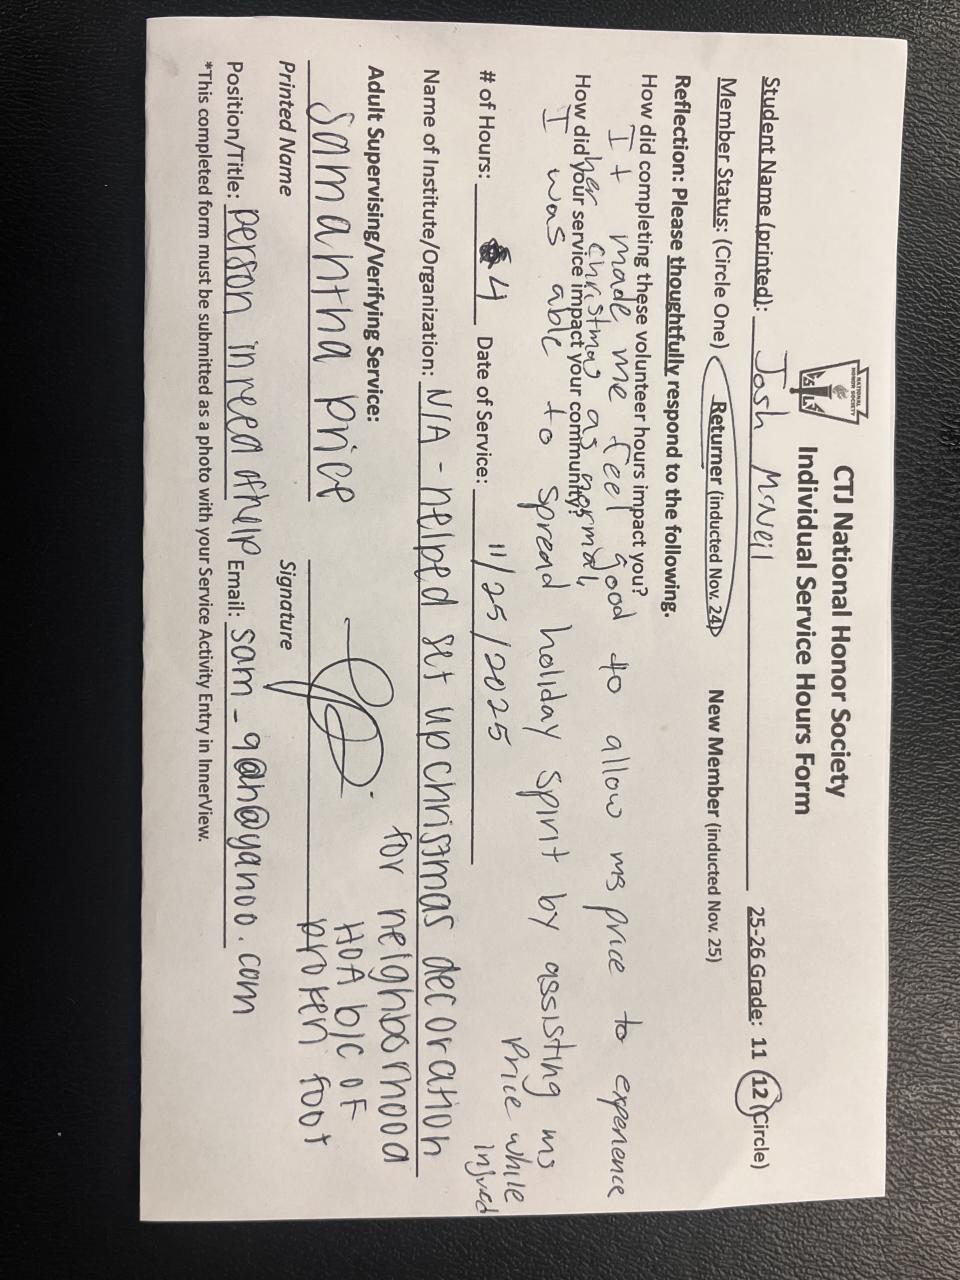 NATIONAL
HONOR SOCIETY
CTJ National Honor Society
Individual Service Hours Form
Student Name (printed): Josh McNeil 25-26 Grade: 11 12 (Circle)
Member Status: (Circle One) Returner (inducted Nov. 24) New Member (inducted Nov. 25)
Reflection: Please thoughtfully respond to the following.
How did completing these volunteer hours impact you?
It made me feel good to allow ms price to experience
her christmas as normal,
How did your service impact your community?
I was able to spread holiday spirit by assisting ms
Price while
injured
# of Hours: 4 Date of Service: 11/25/2025
Name of Institute/Organization: N/A - helped set up christmas decoration
for neighborhood
HOA b/c of
broken foot
Adult Supervising/Verifying Service:
Samantha Price
Printed Name Signature
Position/Title: person in need of help Email: @yahoo.com
*This completed form must be submitted as a photo with your Service Activity Entry in InnerView.